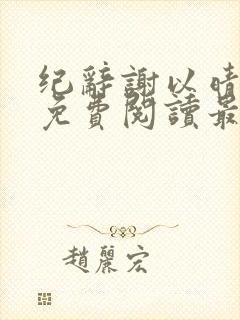 纪辭謝以晴
免費閱讀最
趙麗宏